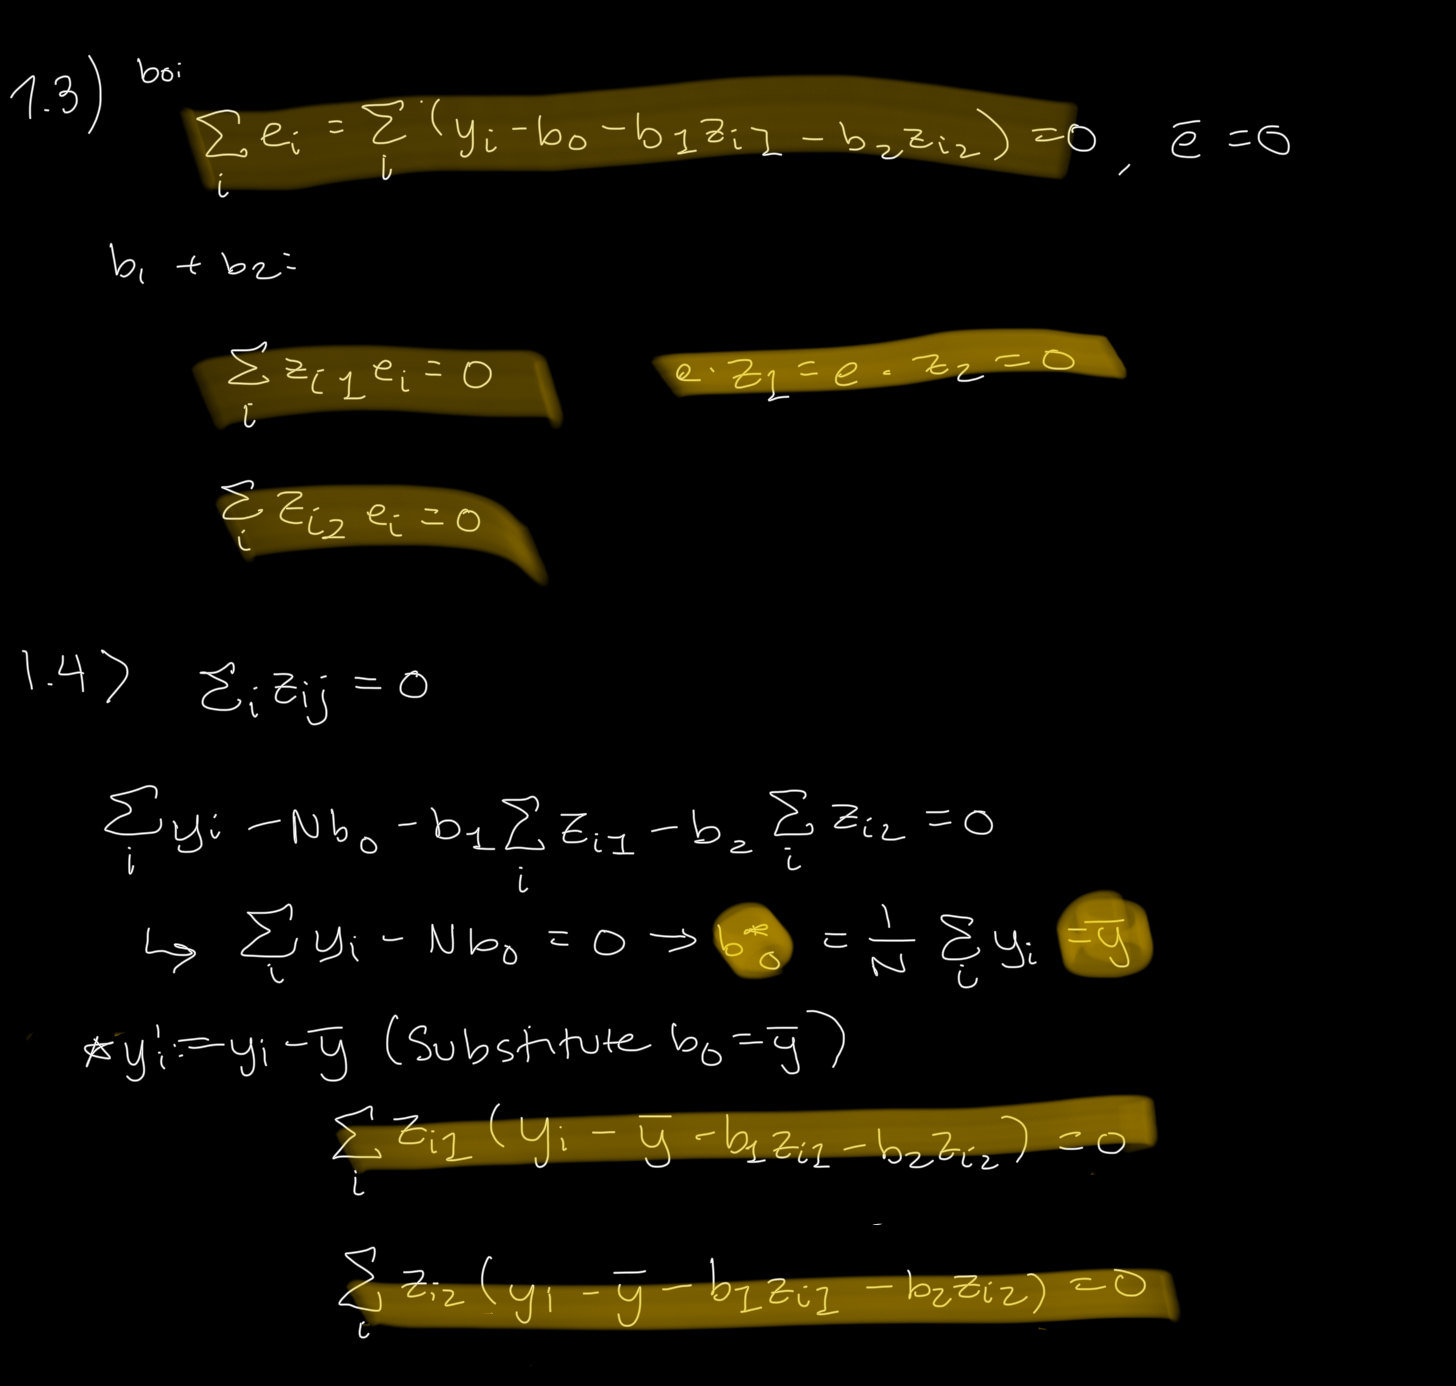 1.3) boi
∑_i e_i = ∑_i (y_i - b_0 - b_1 z_i1 - b_2 z_i2) = 0, e̅ = 0
b_1 + b_2:
∑_i z_i1 e_i = 0    e · z_1 = e · z_2 = 0
∑_i z_i2 e_i = 0
1.4) ∑_i z_ij = 0
∑_i y_i - N b_0 - b_1 ∑_i z_i1 - b_2 ∑_i z_i2 = 0
↳ ∑_i y_i - N b_0 = 0 → b*_0 = 1/N ∑_i y_i = y̅
* y'_i := y_i - y̅ (Substitute b_0 = y̅)
∑_i z_i1 (y_i - y̅ - b_1 z_i1 - b_2 z_i2) = 0
∑_i z_i2 (y_i - y̅ - b_1 z_i1 - b_2 z_i2) = 0